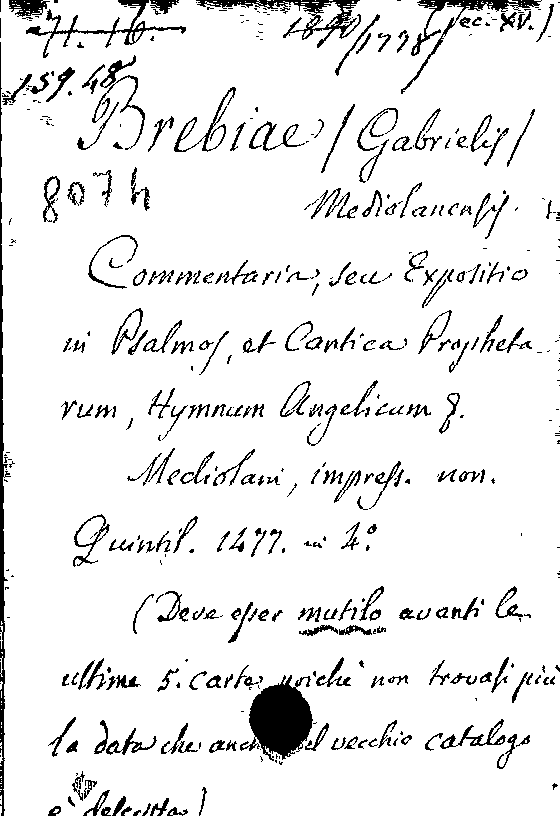 71. 16. 1890/1778/ Sec. XV.]
159. 48
Brebiae / Gabrielis /
807 h
Mediolanensis.
Commentaria, seu Expositio
in Psalmos, et Cantica Propheta
rum, Hymnum Angelicum &.
Mediolani, impress. non.
Quintil. 1477. in 4.º
(Deve esser mutilo avanti le
ultime 5. carte, poichè non trovasi più
la data che anch el vecchio catalogo
e' descritta)